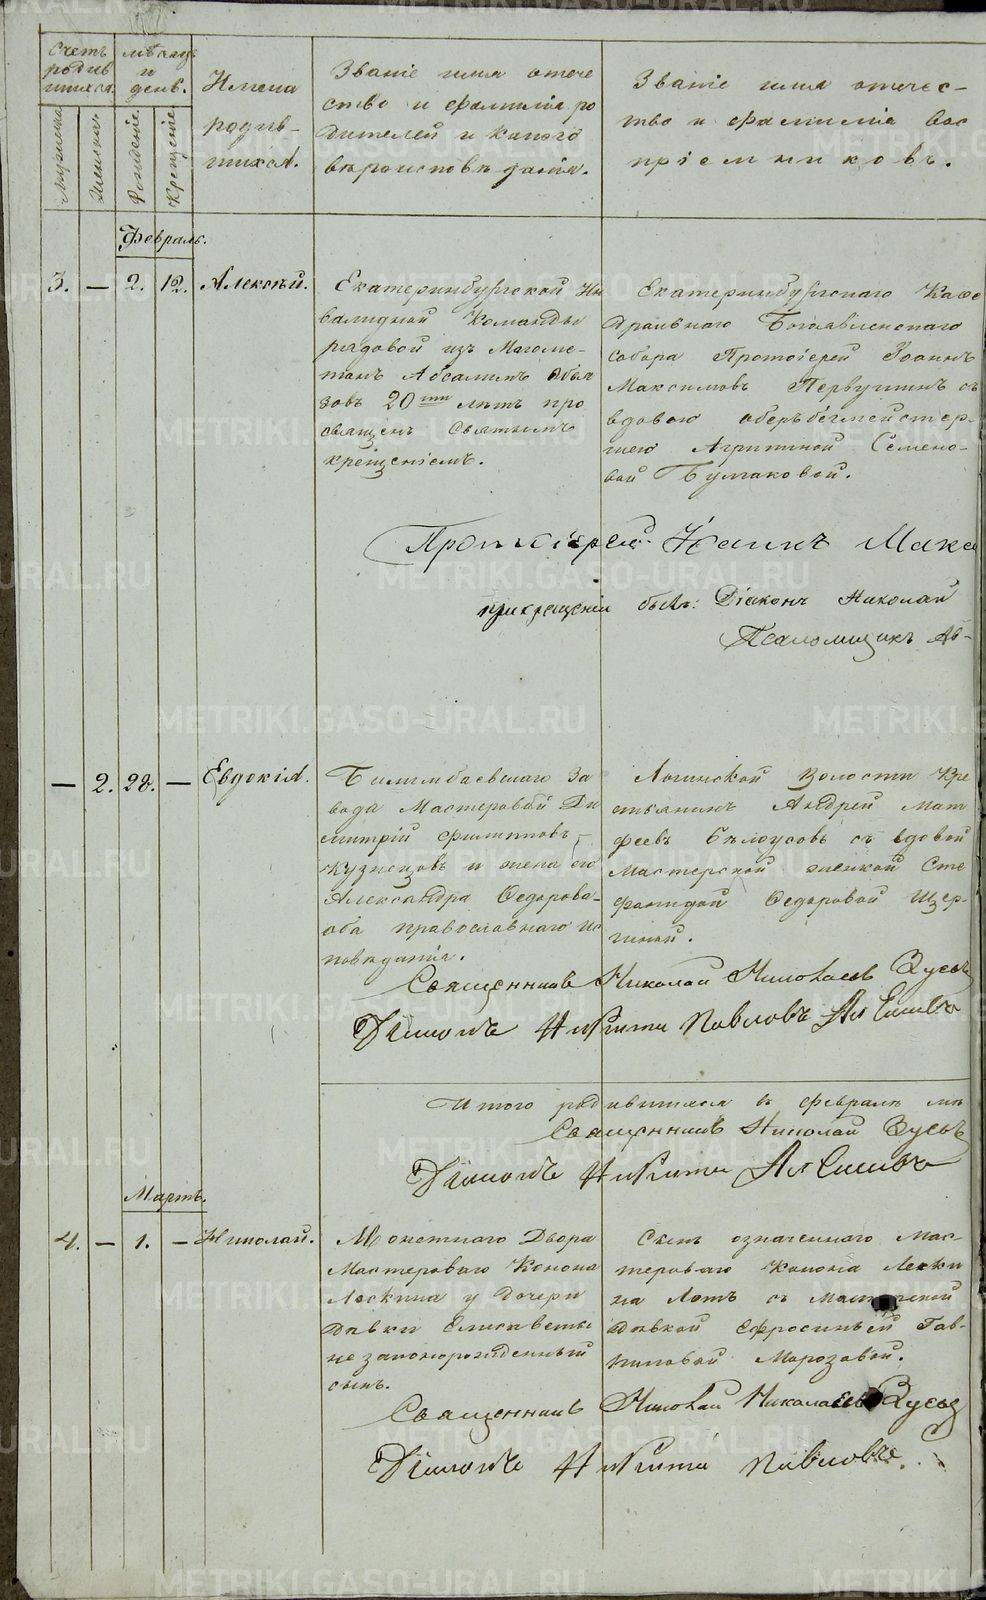 Счетъ
родив
шихся.
мѣсяцъ
и
день.
Имена
родив-
шихся.
Званіе имя отече
ство и фамилія ро
дителей и какого
вѣроисповѣданія.
Званіе имя отчес-
тво и фамилія вос
пріемниковъ.
Мужеска
Женска.
Рожденіе.
Крещеніе.
Февраль.
3. — 2. 12. Алексѣй.
Екатеринбургской Ин
валидной Команды
рядовой изъ Магоме-
танъ Абсалимъ Абья
зовъ 20ти лѣтъ про
свѣщенъ Святымъ
крещеніемъ.
Екатеринбургскаго Кафе
дральнаго Богоявленскаго
собора Протоіерей Іоаннъ
Максимовъ Первушинъ съ
вдовою оберъбегмейстер-
шею Агрипиной Семено-
вой Булгаковой.
Протоіерей Іоаннъ Макс
при крещеніи былъ: Діаконъ Николай
Псаломщикъ Ав-
— 2. 28. — Евдокія.
Билимбаевскаго За
вода Мастеровой Ди
митрій Филипповъ
Кузнецовъ и жена его
Александра Ѳедорова-
оба православнаго ис
повѣданія.
Логинской волости Кре
стьянинъ Андрей Мат
феевъ Бѣлоусовъ съ вдовой
Мастерской женкой Сте
фанидой Ѳедоровой Щер-
гиной.
Священникъ Николай Николаевъ
Діаконъ Никита Павловъ
Итого родившихся въ февралѣ мѣ
Священникъ Николай
Діаконъ Никита
Мартъ.
4. — 1. — Николай.
Монетнаго Двора
Мастероваго Конона
Лоскина у дочери
дѣвки Елисаветы
незаконорожденный
сынъ.
Сынъ означеннаго Мас-
тероваго Конона Лоски
на Лотъ съ Мастерской
дѣвкой Ефросиньей Гав-
риловой Морозовой.
Священникъ Николай Николаевъ
Діаконъ Никита Павловъ.
METRIKI.GASO-URAL.RU